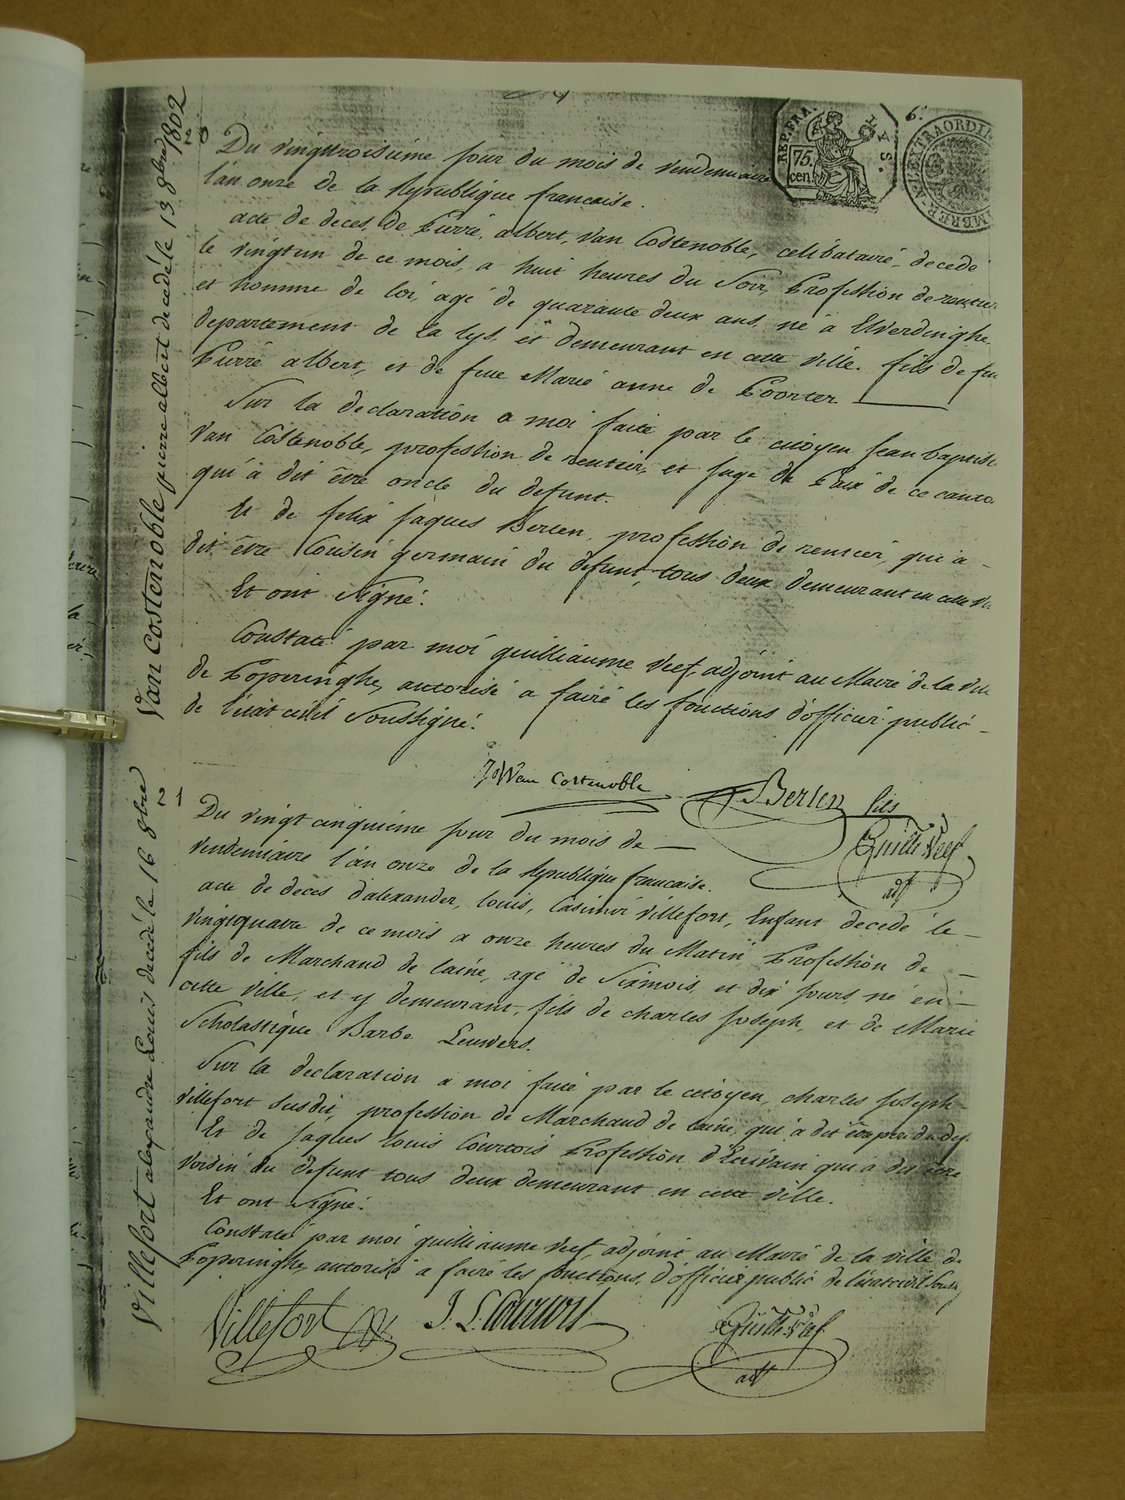 6.
REP. FRA.
75.
cen.
A S.
EXTRAORD
TIMBRE
Van Costenoble pierre albert decedé le 13 8bre 1802
20
Du vingttroisiéme jour du mois de vendemiaire
l'an onze de la Republique francaise.
acte de deces, de Pierre, albert, Van Costenoble, celibatairé, decedé
le vingtun de ce mois, a huit heures du Soir, Profession de rentier
et homme de loi, agé de quarante deux ans, né a Elverdinghe,
departement de la lys, et demeurant en cette ville. fils de feu
Pierré albert, et de feue Marie anne de Poorter
Sur la declaration a moi faite par le citoyen Jean baptiste
Van Costenoble, profession de rentier, et Juge de Paix de ce canton
qui a dit être oncle du defunt.
Et de felix Jaques Berten, profession de rentier, qui a
dit être Cousin germain du defunt, tous deux demeurant en cette vi
Et ont signé.
Constaté par moi guilliaume Veef, adjoint au Maire de la vil
de Poperinghe, autorisé a fairé les fonctions d'officier public
de l'etat civil Soussigné.
Van Costenoble
Berten fils
Guill: Veef
adjt
Villefort alexandre Louis decedé le 16 8bre
21
Du vingt cinquiéme jour du mois de
vendemiaire l'an onze de la Republique francaise.
acte de deces d'alexander, louis, Casimir villefort, Enfant decedé le
vingtquatre de ce mois a onze heures du Matin Profession de
fils de Marchand de lainé, agé de Sixmois, et dix jours, né en
cette ville, et y demeurant, fils de charles Joseph, et de Marie
Scholastique Barbe Leuwers.
Sur la declaration a moi faite par le citoyen, charles Joseph
villefort susdit, profession de Marchand de lainé, qui a dit être pere du def.
Et de Jaques louis Courtois Profession d'Ecrivain qui a dit être
voisin du defunt tous deux demeurant en cette ville.
Et ont signé.
Constaté par moi guilliaume Veef, adjoint au Mairé de la ville de
Poperinghe, autorisé a fairé les fonctions, d'officier public de l'etat civil
Villefort
J. L. Courtois
Guill: Veef
adjt